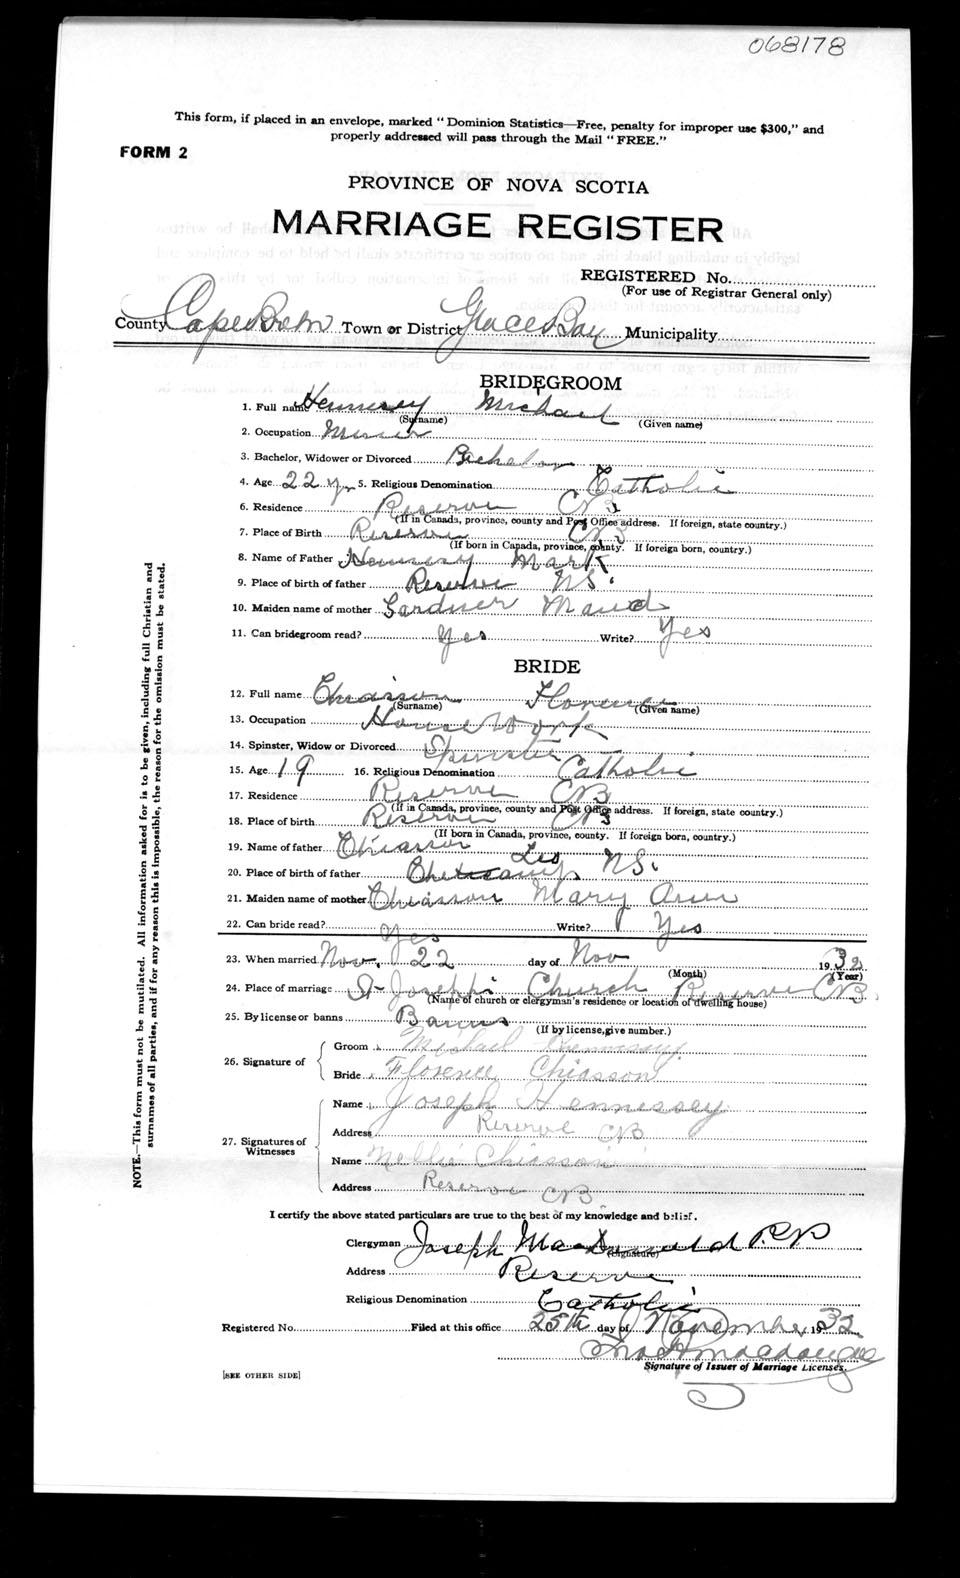 068178
This form, if placed in an envelope, marked "Dominion Statistics—Free, penalty for improper use $300," and
properly addressed will pass through the Mail "FREE."
FORM 2
PROVINCE OF NOVA SCOTIA
MARRIAGE REGISTER
REGISTERED No.
(For use of Registrar General only)
County Cape Breton Town or District Glace Bay Municipality
BRIDEGROOM
1. Full name Hennesey Michael
(Surname) (Given name)
2. Occupation Miner
3. Bachelor, Widower or Divorced Bachelor
4. Age 22 yrs 5. Religious Denomination Catholic
6. Residence Reserve CB
(If in Canada, province, county and Post Office address. If foreign, state country.)
7. Place of Birth Reserve CB
(If born in Canada, province, county. If foreign born, country.)
8. Name of Father Hennessy Mark
9. Place of birth of father Reserve NS.
10. Maiden name of mother Gardner Maud
11. Can bridegroom read? Yes Write? Yes
BRIDE
12. Full name Chiasson Florence
(Surname) (Given name)
13. Occupation House Work
14. Spinster, Widow or Divorced Spinster
15. Age 19 16. Religious Denomination Catholic
17. Residence Reserve CB
(If in Canada, province, county and Post Office address. If foreign, state country.)
18. Place of birth Reserve CB
(If born in Canada, province, county. If foreign born, country.)
19. Name of father Chiasson Leo
20. Place of birth of father Cheticamp NS.
21. Maiden name of mother Chiasson Mary Ann
22. Can bride read? Yes Write? Yes
23. When married Nov. 22 day of Nov 1932
(Month) (Year)
24. Place of marriage St Josephs Church Reserve CB.
(Name of church or clergyman's residence or location of dwelling house)
25. By license or banns Banns
(If by license, give number.)
26. Signature of
Groom Michael Hennessy
Bride Florence Chiasson
27. Signatures of Witnesses
Name Joseph Hennessey
Address Reserve CB
Name Nellie Chiasson
Address Reserve CB
I certify the above stated particulars are true to the best of my knowledge and belief.
Clergyman Joseph MacDonald P.P.
(Signature)
Address Reserve
Religious Denomination Catholic
Registered No. Filed at this office 25th day of November 1932
Signature of Issuer of Marriage Licenses.
[SEE OTHER SIDE]
NOTE.—This form must not be mutilated. All information asked for is to be given, including full Christian and
surnames of all parties, and if for any reason this is impossible, the reason for the omission must be stated.